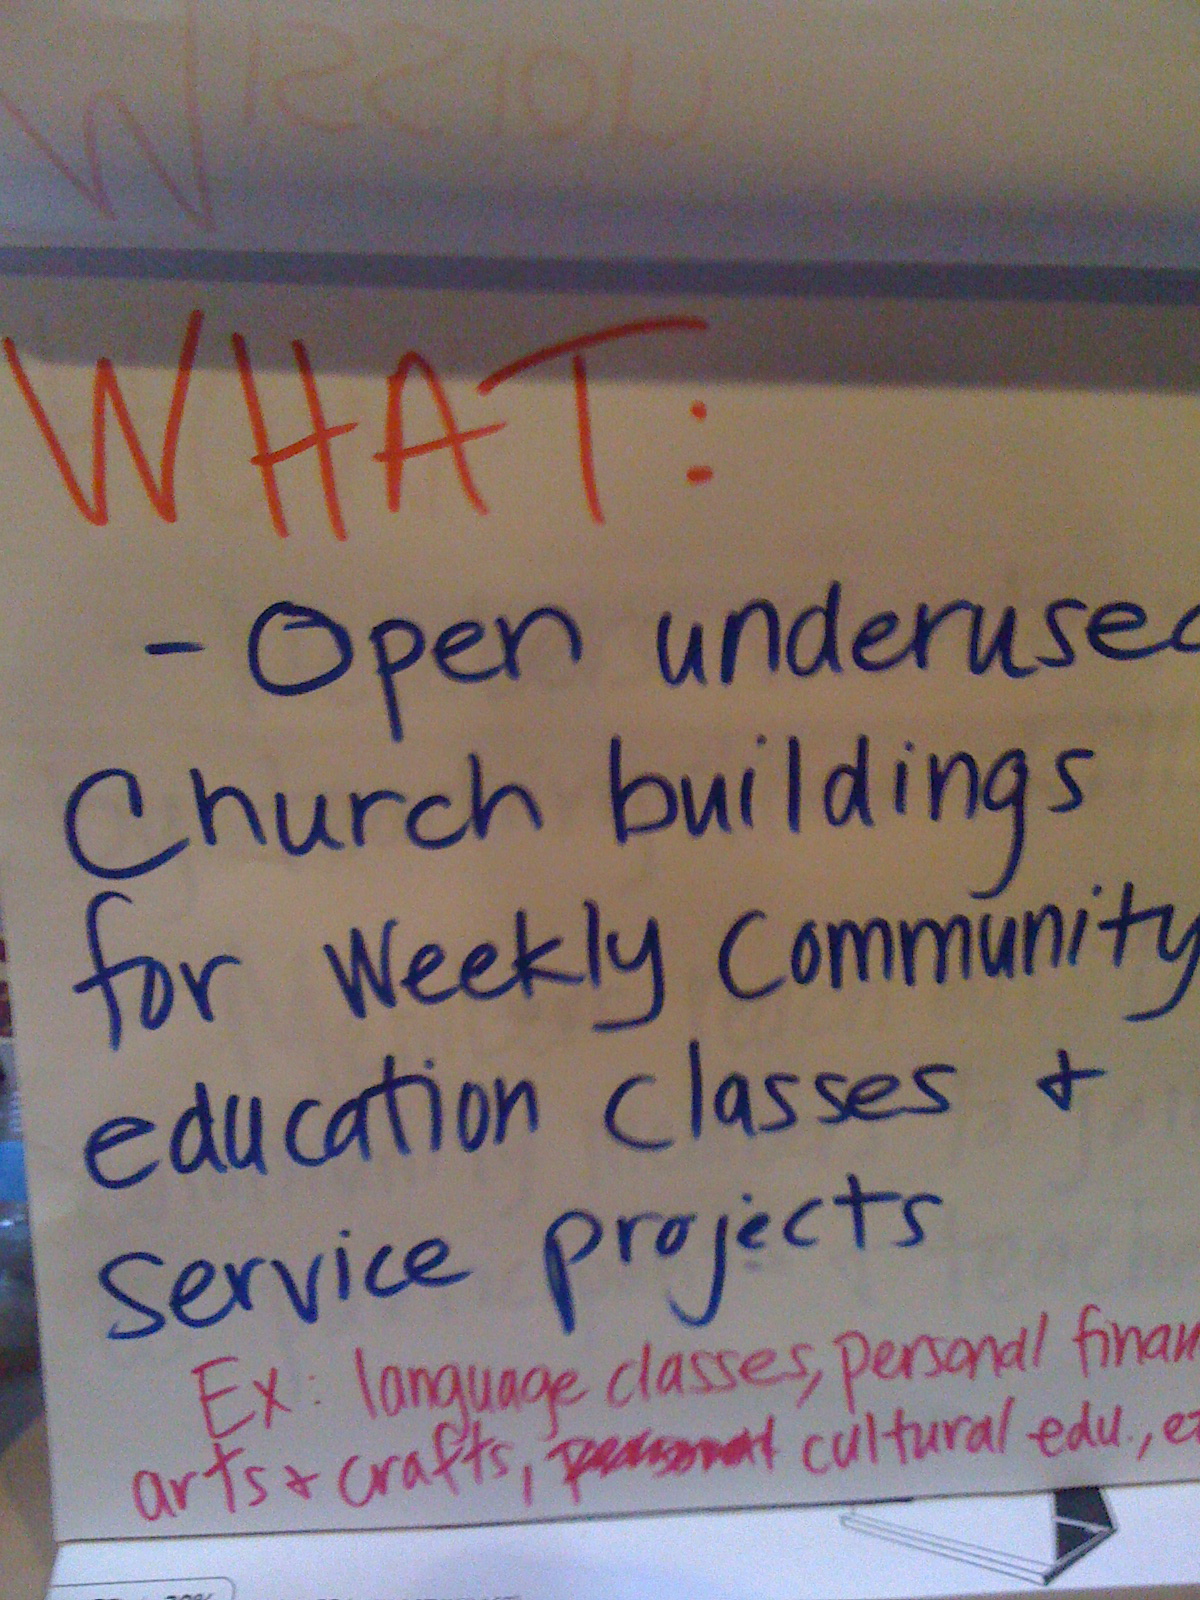 Mission
WHAT:
- Open underused
Church buildings
for Weekly Community
education classes +
Service projects
Ex: language classes, personal finan
arts + crafts, cultural edu.,